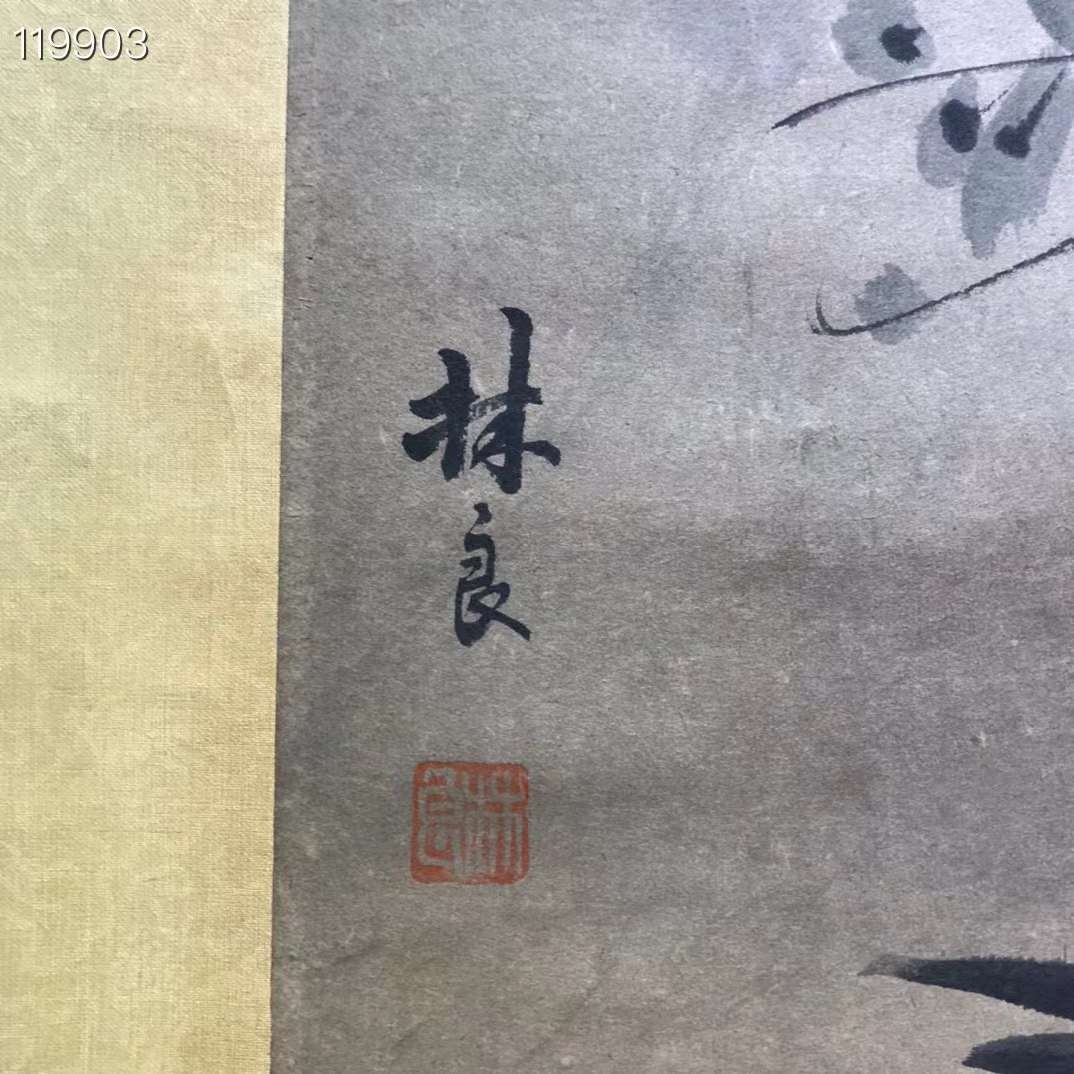 119903
林良
林良